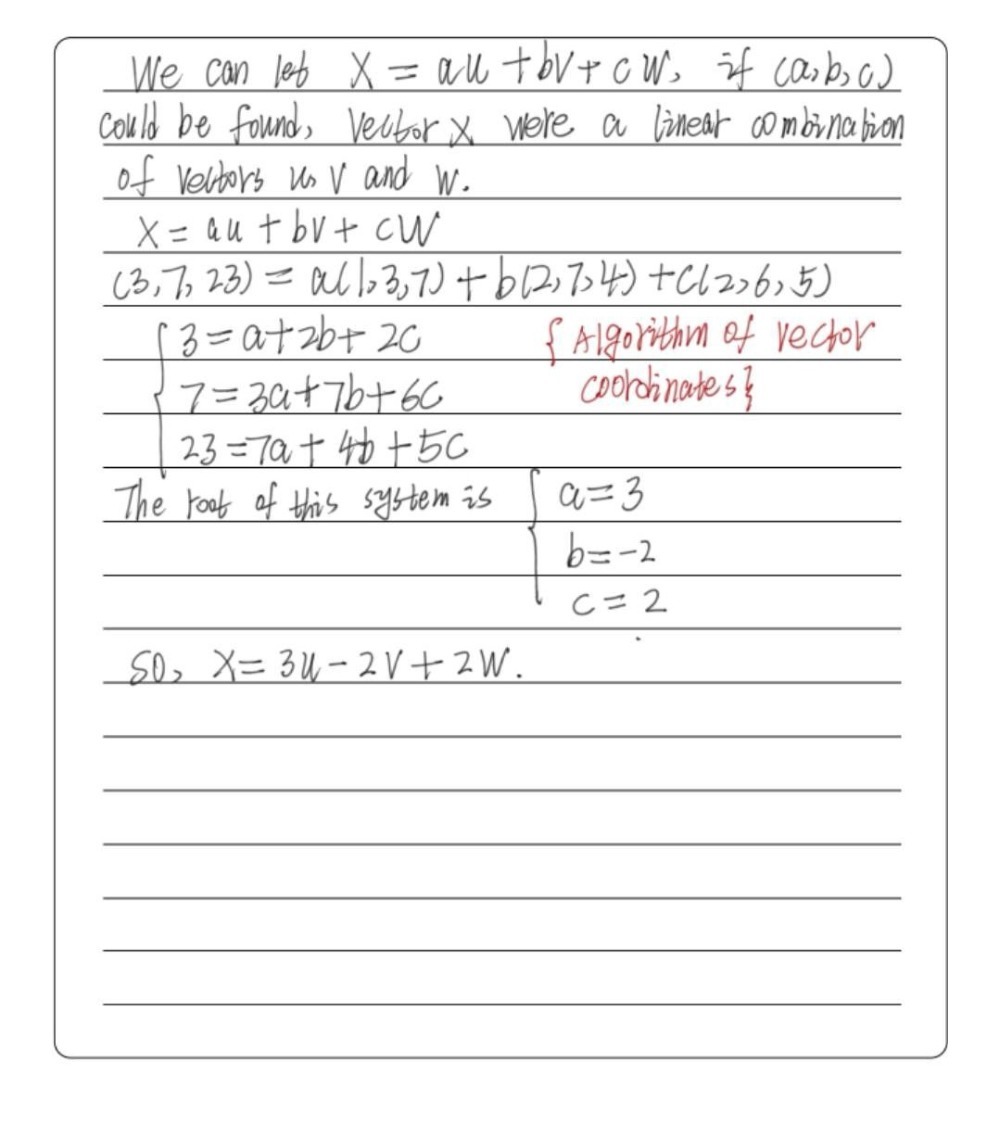 We can let X = au + bv + cw, if (a,b,c)
could be found, vector X were a linear combination
of vectors u, v and w.
X = au + bv + cw
(3,7,23) = a(1,3,7) + b(2,7,4) + c(2,6,5)
3 = a + 2b + 2c { Algorithm of vector
7 = 3a + 7b + 6c coordinates}
23 = 7a + 4b + 5c
The root of this system is a = 3
b = -2
c = 2
So, X = 3u - 2v + 2w.